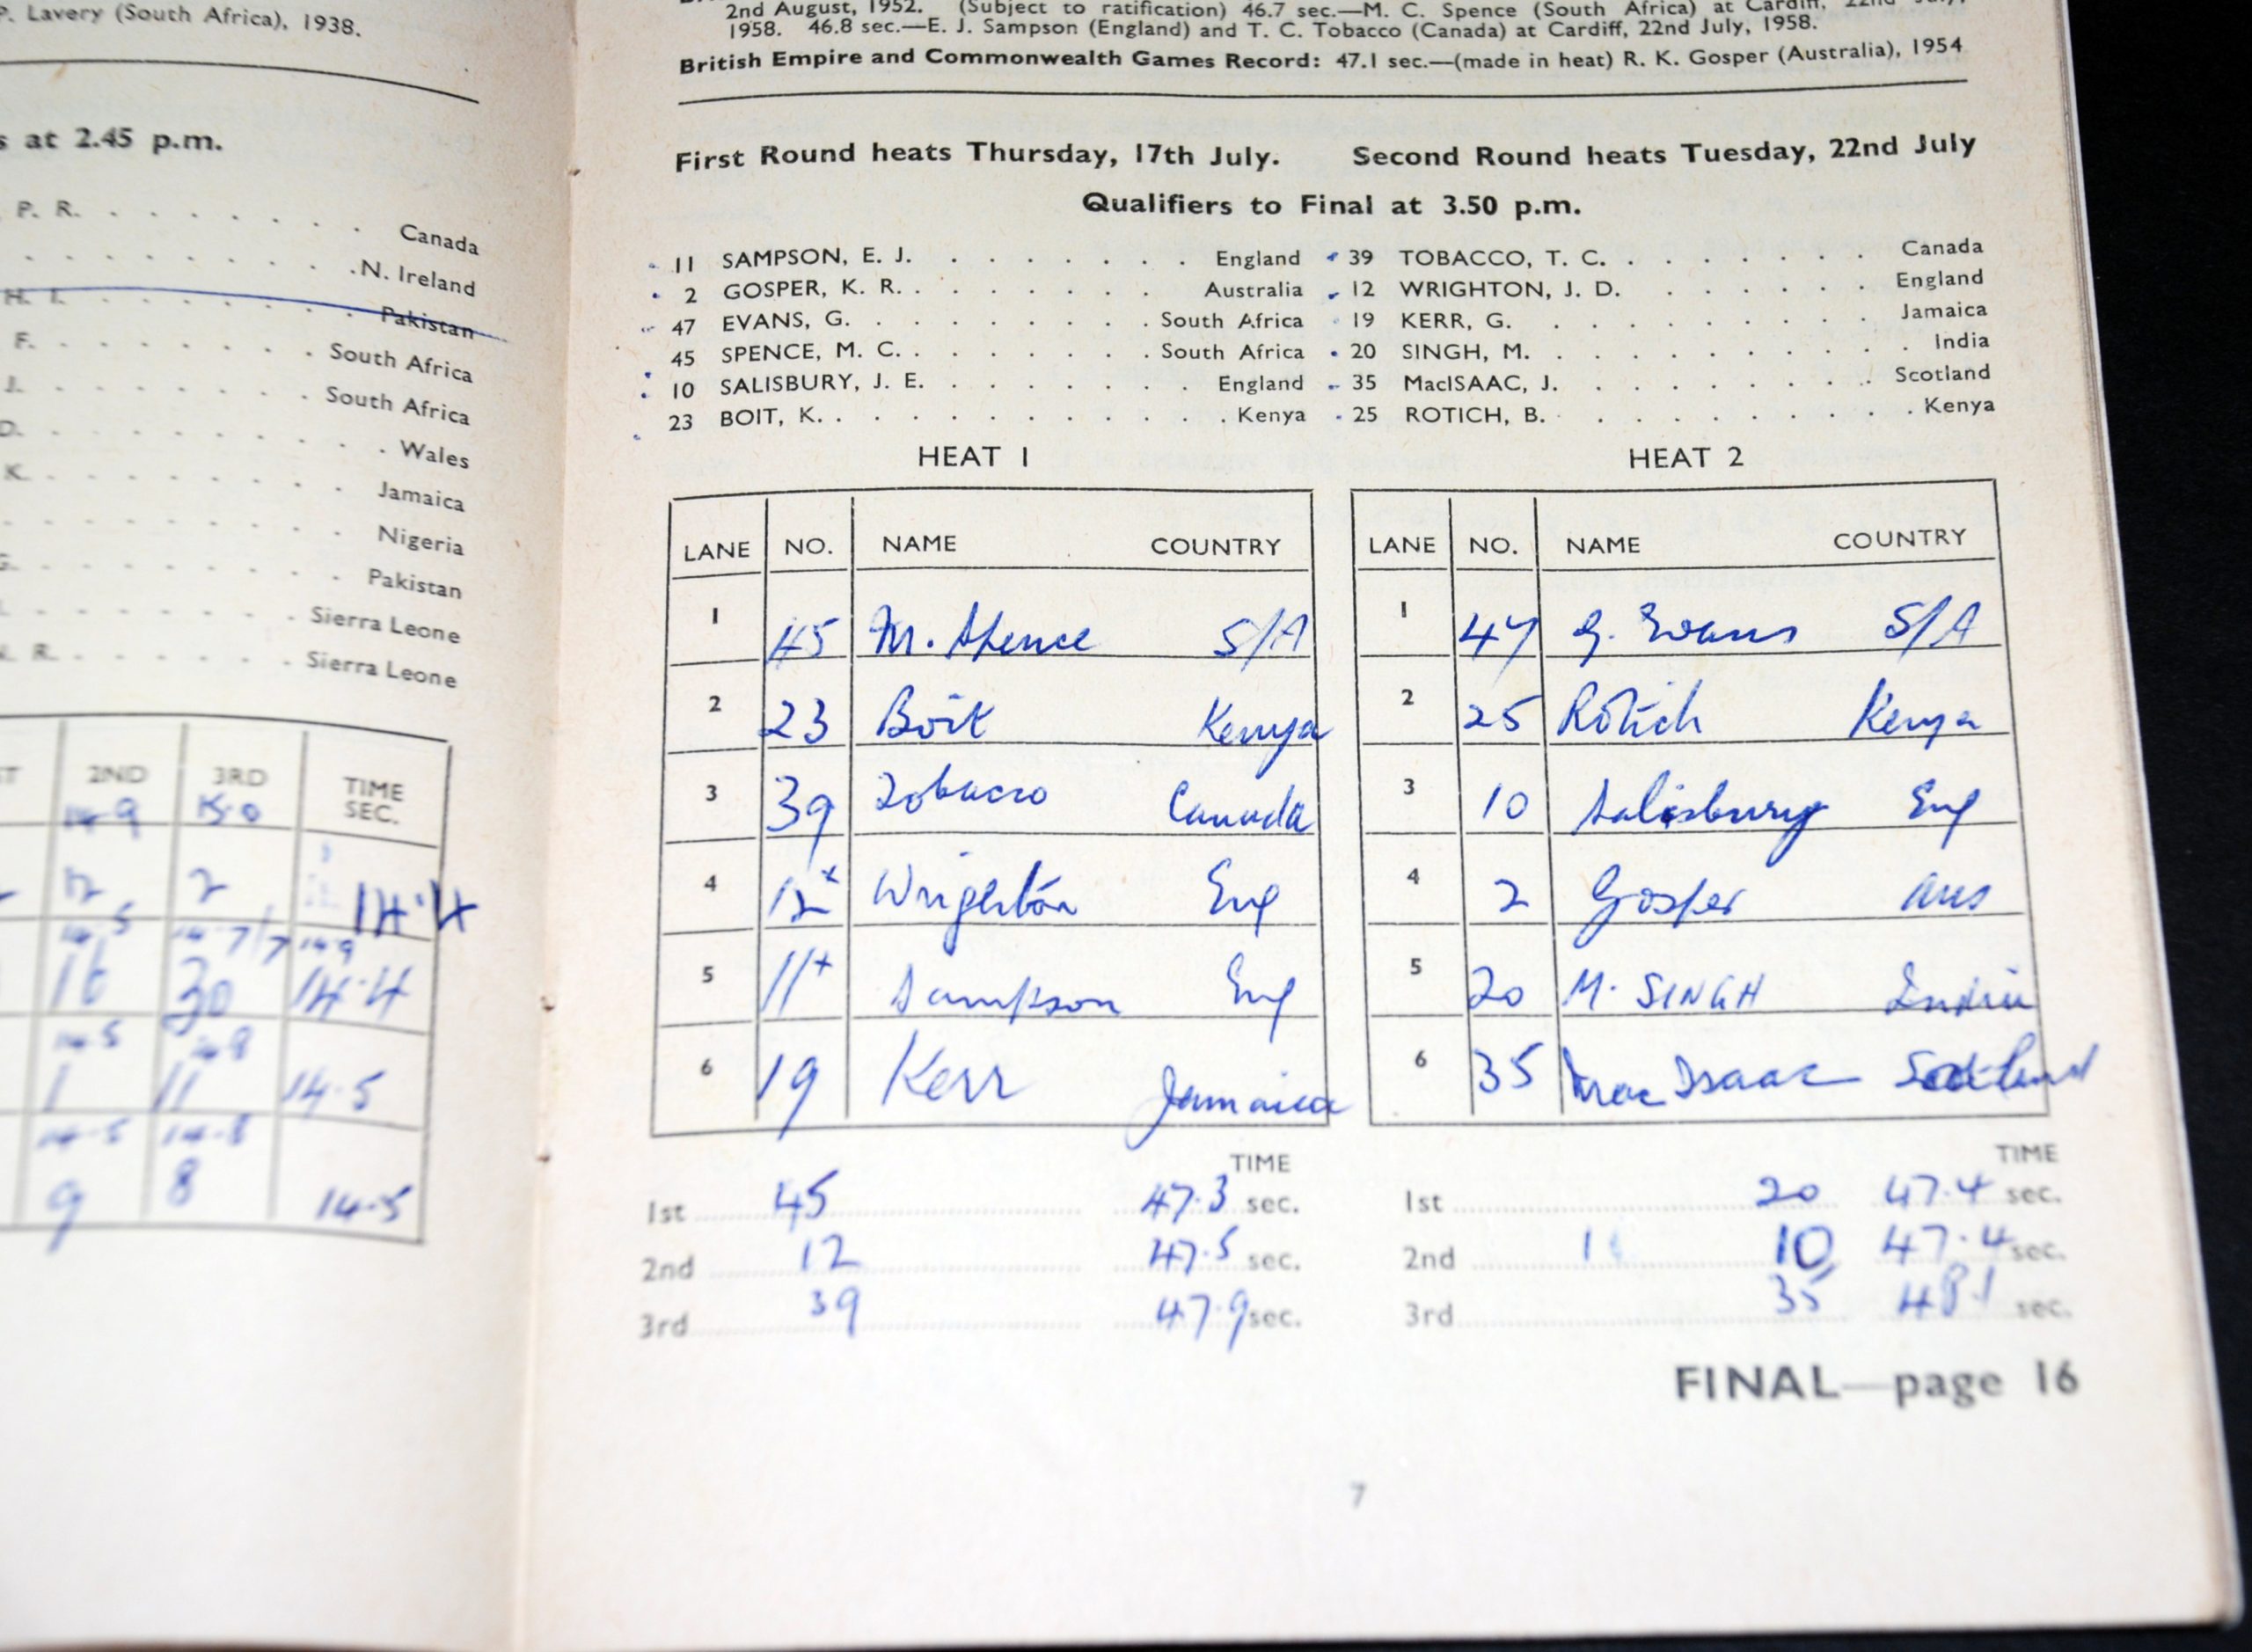 P. Lavery (South Africa), 1938.
at 2.45 p.m.
P. R. Canada
N. Ireland
H. I. Pakistan
F. South Africa
J. South Africa
D. Wales
K. Jamaica
Nigeria
G. Pakistan
Sierra Leone
R. Sierra Leone
2ND 3RD TIME SEC.
14.9 15.0
12 2 14.4
14.5 14.7 14.9
16 30 14.4
14.5 14.8
1 11 14.5
14.5 14.8
9 8 14.5
2nd August, 1952. (Subject to ratification) 46.7 sec.—M. C. Spence (South Africa) at Cardiff, 22nd July,
1958. 46.8 sec.—E. J. Sampson (England) and T. C. Tobacco (Canada) at Cardiff, 22nd July, 1958.
British Empire and Commonwealth Games Record: 47.1 sec.—(made in heat) R. K. Gosper (Australia), 1954
First Round heats Thursday, 17th July. Second Round heats Tuesday, 22nd July
Qualifiers to Final at 3.50 p.m.
11 SAMPSON, E. J. England 39 TOBACCO, T. C. Canada
2 GOSPER, K. R. Australia 12 WRIGHTON, J. D. England
47 EVANS, G. South Africa 19 KERR, G. Jamaica
45 SPENCE, M. C. South Africa 20 SINGH, M. India
10 SALISBURY, J. E. England 35 MacISAAC, J. Scotland
23 BOIT, K. Kenya 25 ROTICH, B. Kenya
HEAT 1
LANE NO. NAME COUNTRY
1 45 M. Spence S/A
2 23 Boit Kenya
3 39 Tobacco Canada
4 12x Wrighton Eng
5 11+ Sampson Eng
6 19 Kerr Jamaica
TIME
1st 45 47.3 sec.
2nd 12 47.5 sec.
3rd 39 47.9 sec.
HEAT 2
LANE NO. NAME COUNTRY
1 47 G. Evans S/A
2 25 Rotich Kenya
3 10 Salisbury Eng
4 2 Gosper Aus
5 20 M. SINGH India
6 35 MacIsaac Scotland
TIME
1st 20 47.4 sec.
2nd 10 47.4 sec.
3rd 35 48.1 sec.
FINAL—page 16
7